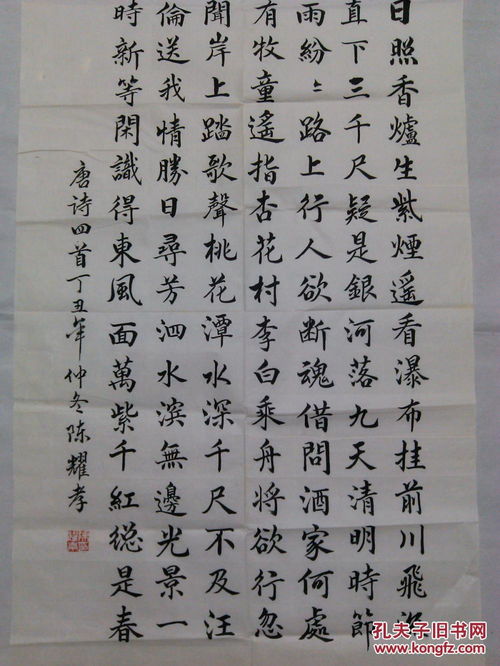 日照香爐生紫煙遥看瀑布挂前川飛流
直下三千尺疑是銀河落九天清明時節
雨紛〻路上行人欲断魂借問酒家何處
有牧童遥指杏花村李白乘舟將欲行忽
聞岸上踏歌聲桃花潭水深千尺不及汪
倫送我情勝日尋芳泗水滨無邊光景一
時新等閑識得東風面萬紫千紅緫是春
唐诗四首丁丑年仲冬陈耀孝
孔夫子旧书网
www.kongfz.com